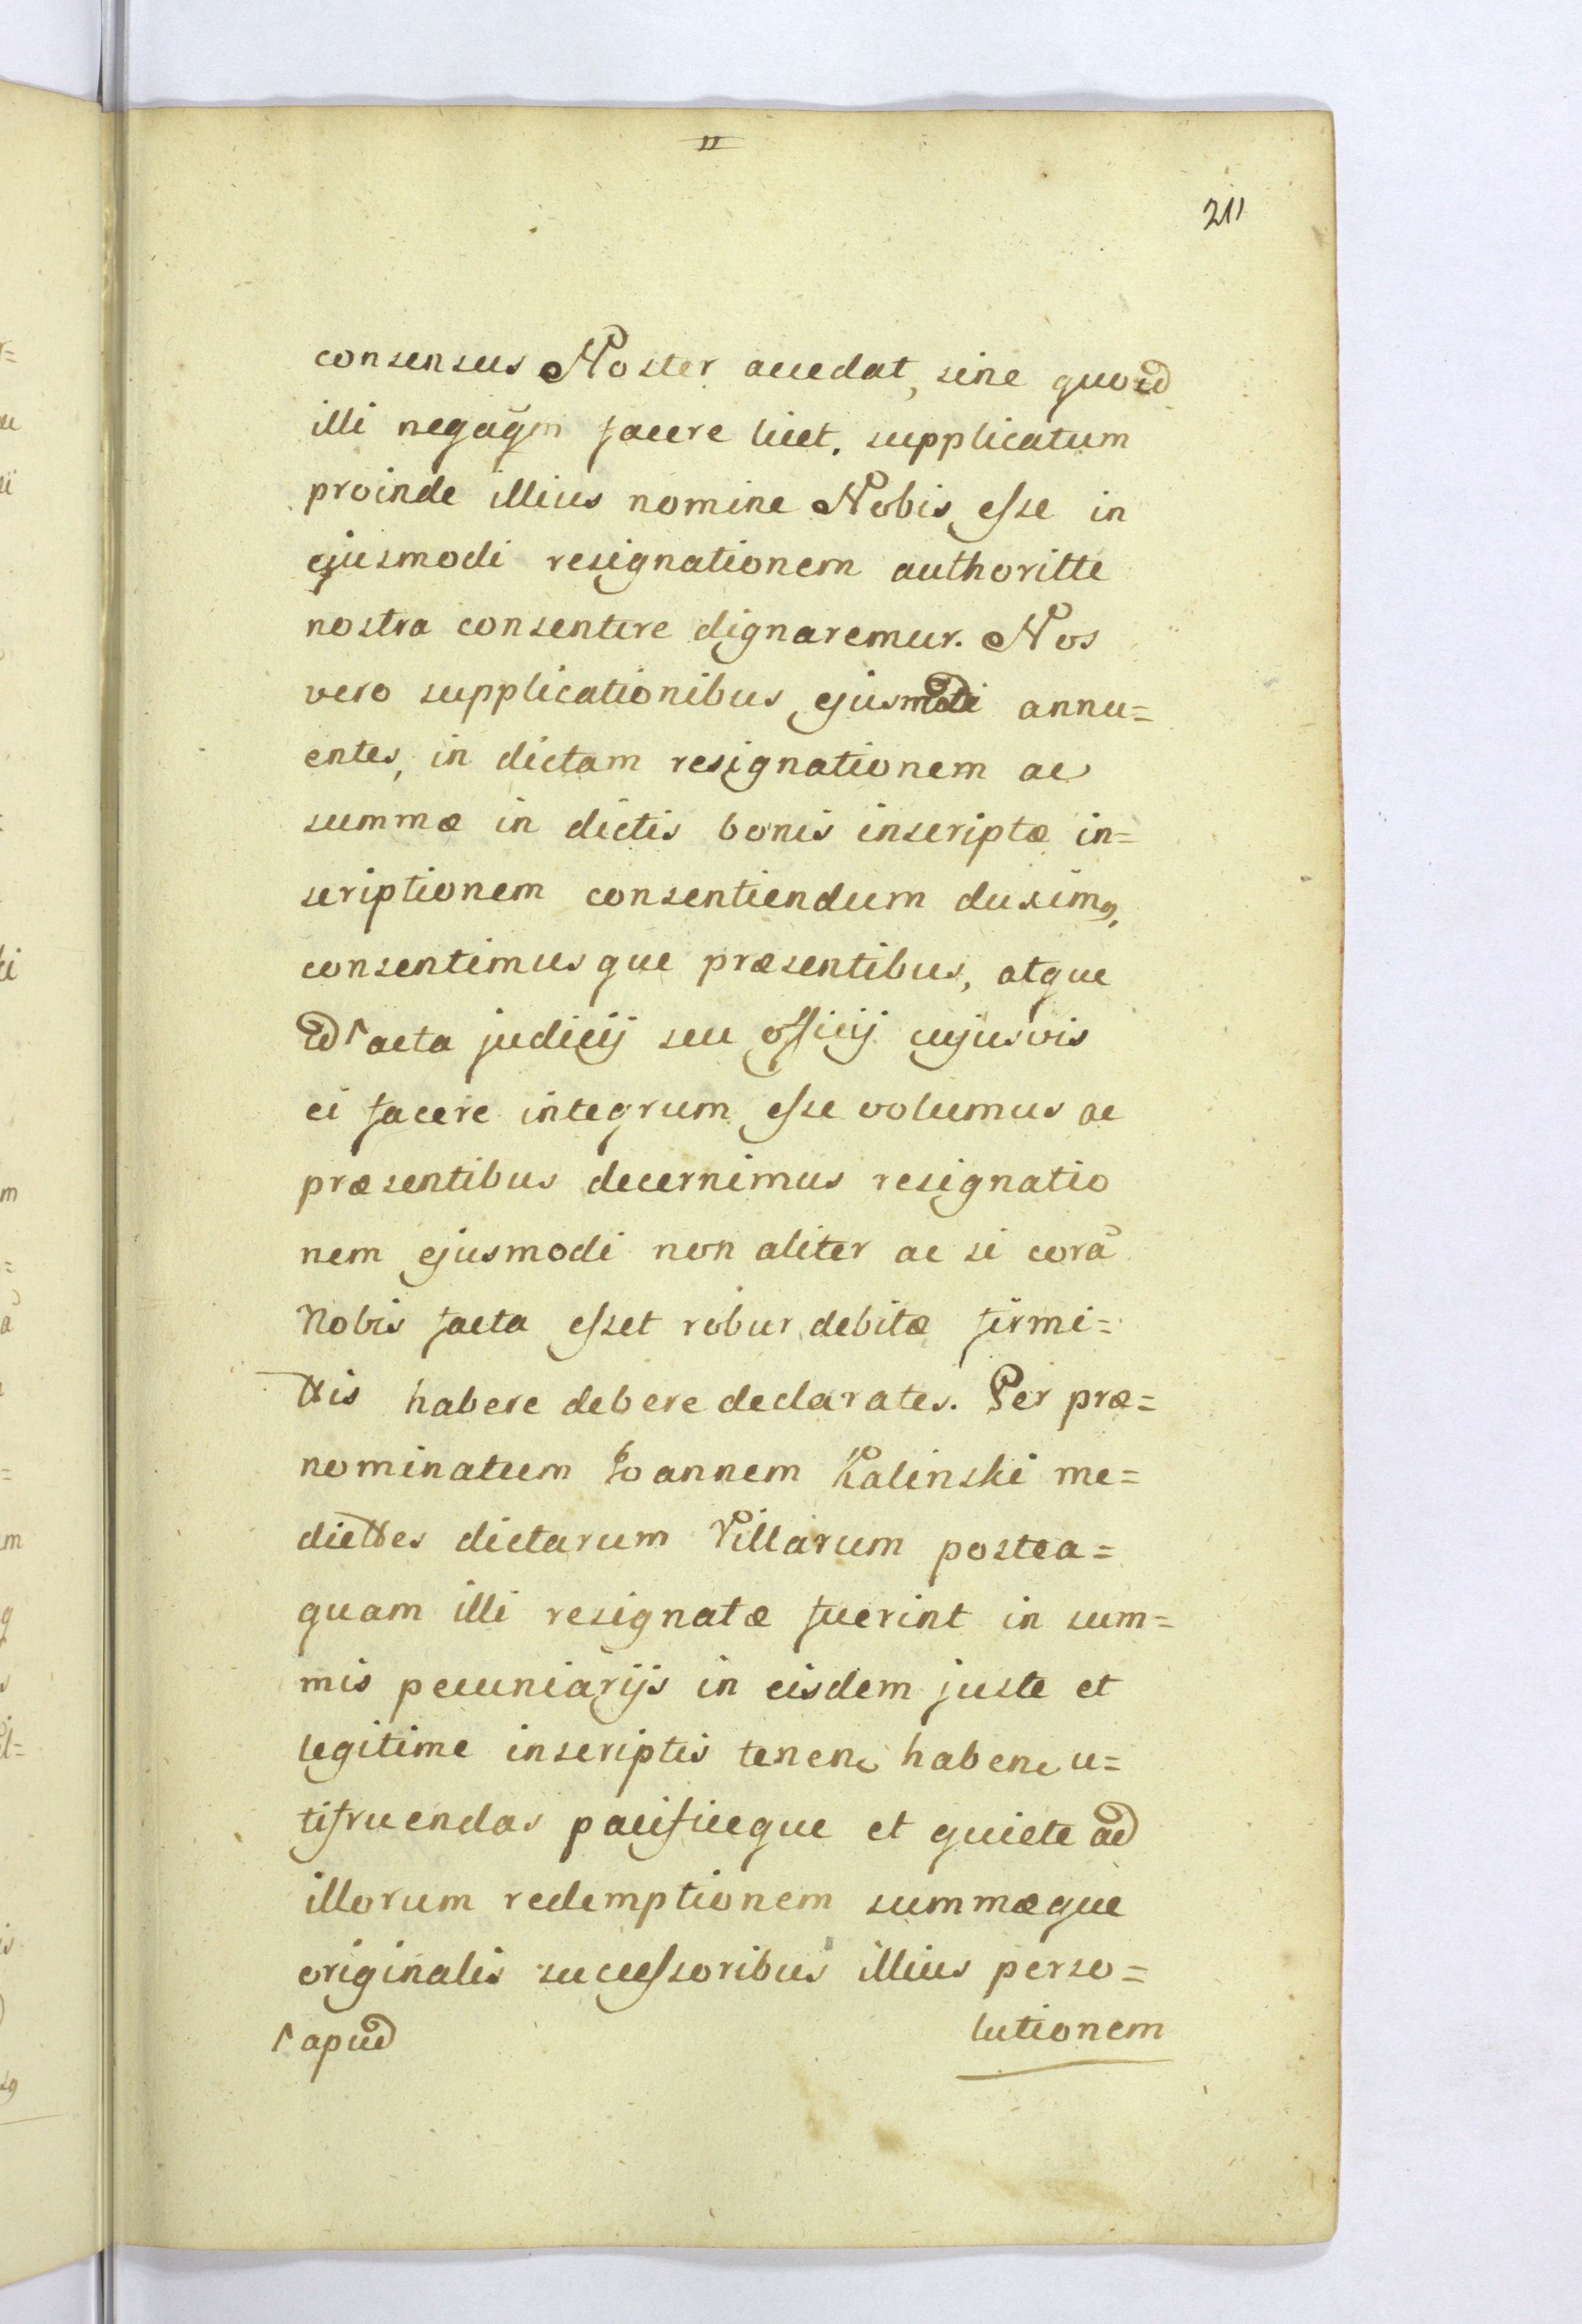 211
consensus Noster accedat, sine quo id
illi negaqm̃ facere licet, supplicatum
proinde illius nomine Nobis esse in
ejusmodi resignationem authoritte
nostra consentire dignaremur. Nos
vero supplicationibus ejusmodi annu=
entes, in dictam resignationem ac
summæ in dictis bonis inscriptæ in=
scriptionem consentiendum duximꝰ,
consentimusque præsentibus, atque
id ꜛ acta judicij seu officij cujusvis
ei facere integrum esse volumus ac
præsentibus decernimus resignatio
nem ejusmodi non aliter ac si corã
Nobis facta esset robur debitæ firmi=
ttis habere debere declarates. Per præ=
nominatum Joannem Kalinski me=
diettes dictarum Villarum postea=
quam illi resignatæ fuerint in sum=
mis pecuniarijs in eisdem juste et
legitime inscriptis tenen, haben, u=
tifruendas pacificeque et quiete ad
illorum redemptionem summæque
originalis successoribus illius perso=
lutionem
ꜛ apud